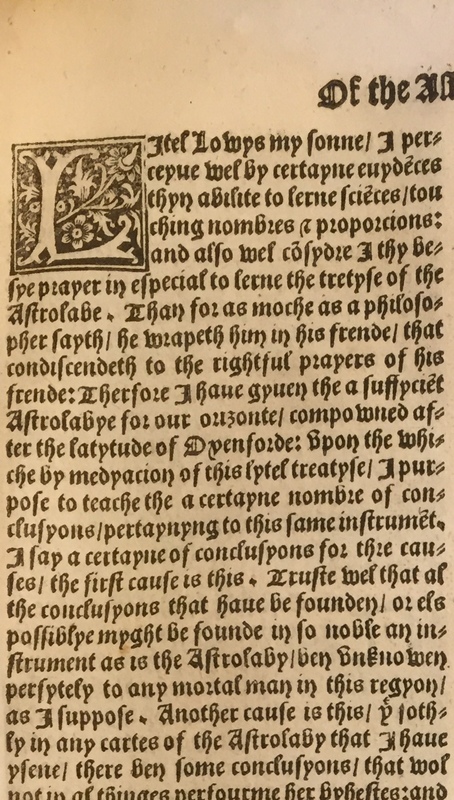 Of the Ast
LItel Lowys my sonne/ I per-
ceyue wel by certayne euydēces
thyn abilite to lerne sciēces/tou
ching nombres ⁊ proporcions:
and also wel cōsydre I thy be-
sye prayer in especial to lerne the tretyse of the
Astrolabe. Than for as moche as a philoso-
pher sayth/ he wrapeth him in his frende/ that
condiscendeth to the rightful prayers of his
frende: Therfore I haue gyuen the a suffyciēt
Astrolabye for our orizonte/ compowned af-
ter the latytude of Oxenforde: Vpon the whi-
che by medyacion of this lytel treatyse/ I pur-
pose to teache the a certayne nombre of con-
clusyons/pertaynyng to this same instrumēt.
I say a certayne of conclusyons for thre cau-
ses/ the first cause is this. Truste wel that al
the conclusyons that haue be founden/ or els
possiblye myght be founde in so noble an in-
strument as is the Astrolaby/ben vnknowen
persytely to any mortal man in this regyon/
as I suppose. Another cause is this/ yͭ soth-
ly in any cartes of the Astrolaby that I haue
ysene/ there ben some conclusyons/ that wol
not in al thinges perfourme her byhestes: and